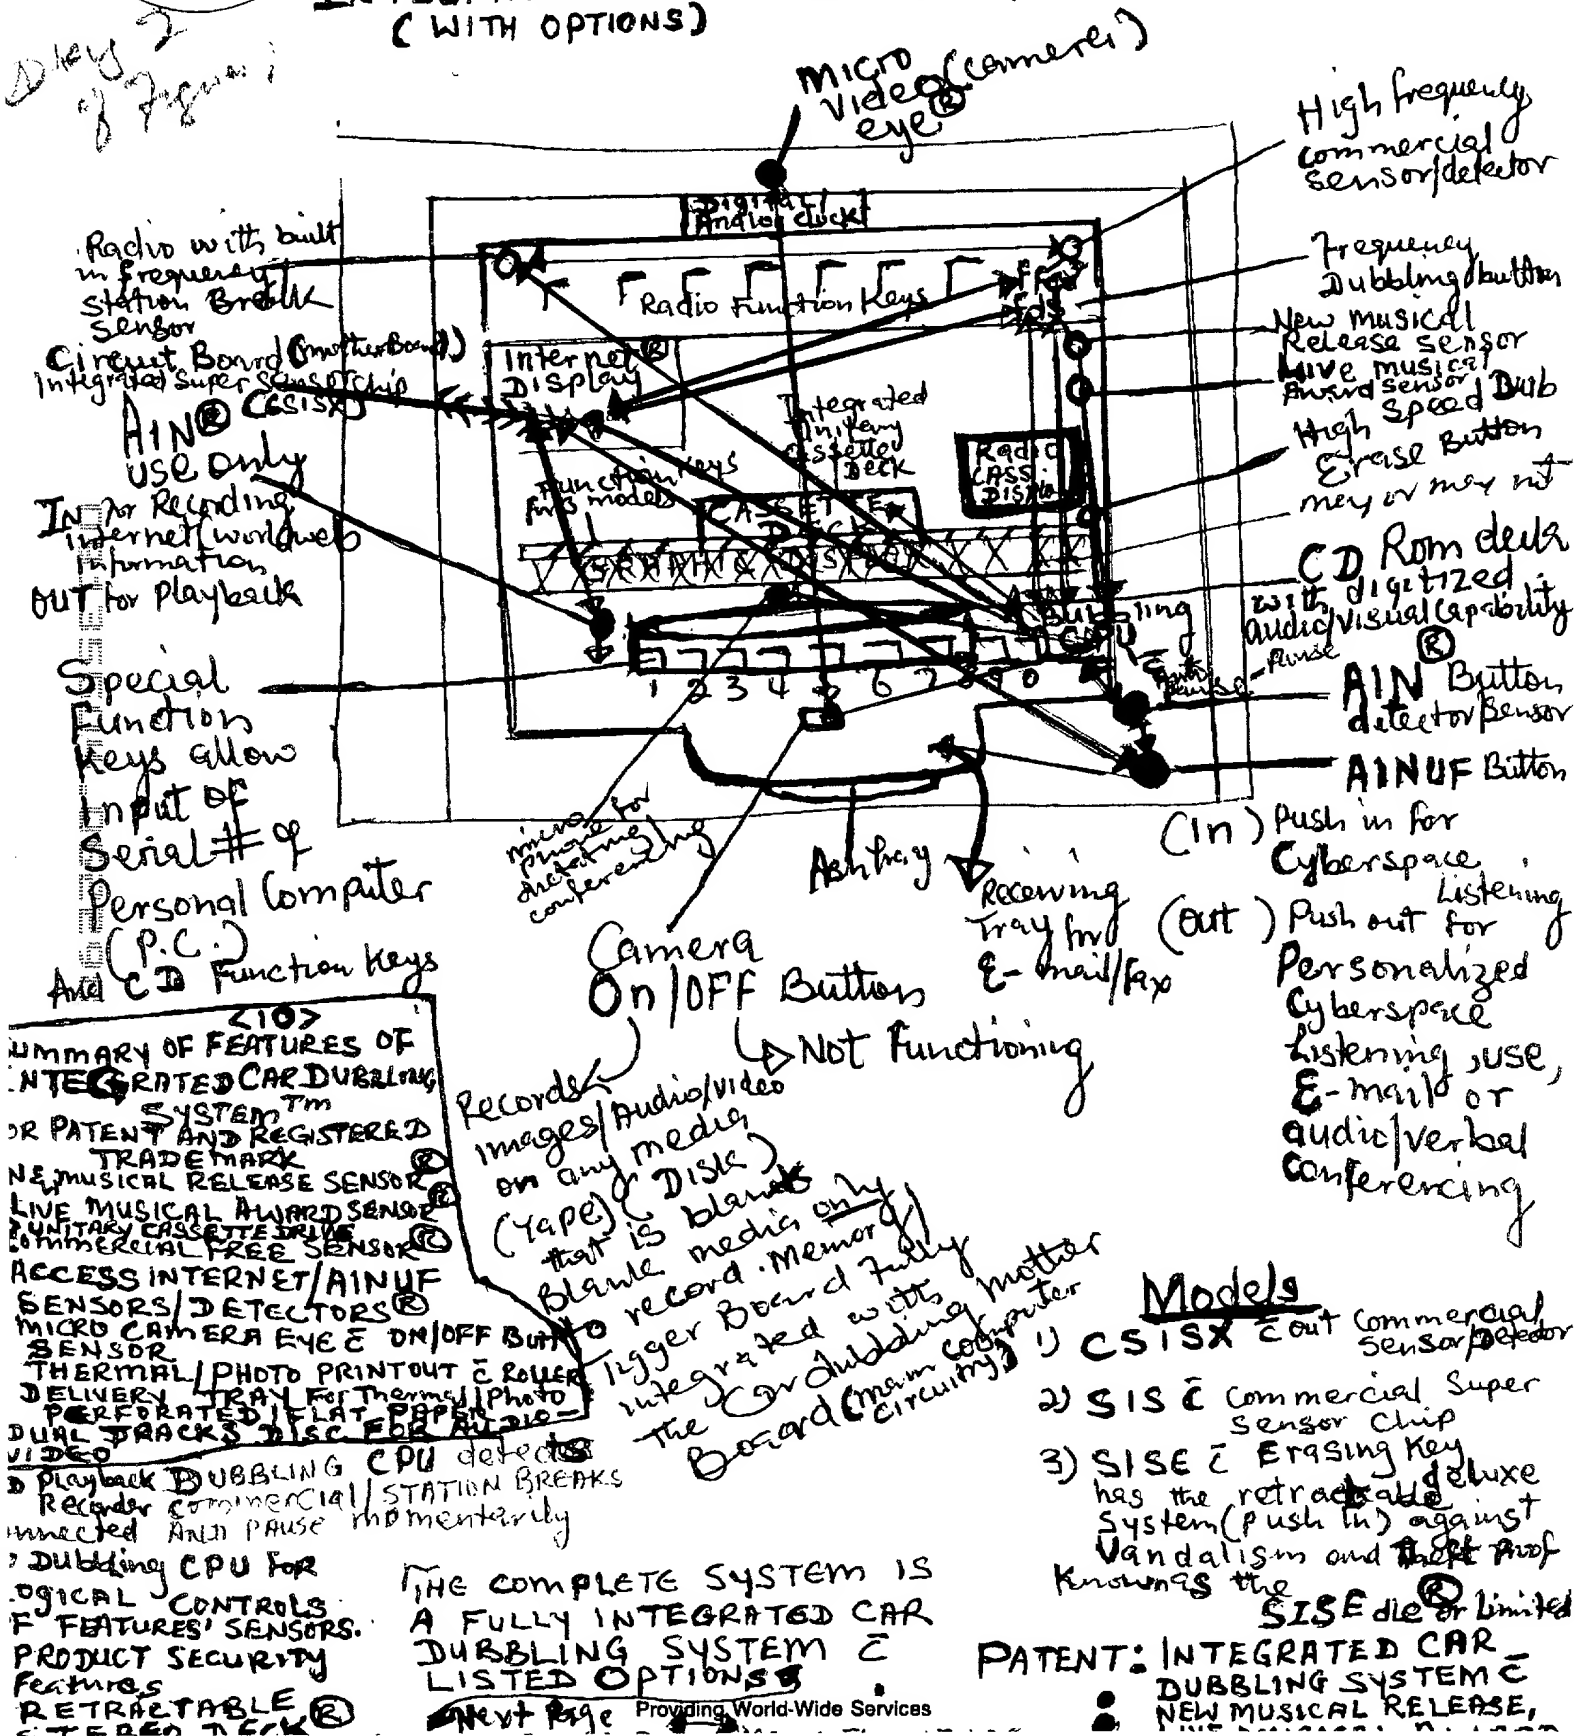 (WITH OPTIONS)
micro
video (camera)
eye ®
High frequency
commercial
sensor/detector
Digital/
Analog clock
Radio with built
in frequency
station Break
sensor
Radio Function Keys
Frequency
Dubbling button
New musical
Release sensor
Live musical
Award sensor
High Speed Dub
Erase Button
may or may not
Circuit Board (MotherBoard)
Integrated Super Sensor Chip
(CSISX)
Internet ®
DISPLAY
Integrated
Unitary
Cassette
Deck
Radio
CASS
AIN ®
use only
IN for Recording
internet/worldweb
information
OUT for Playback
Function Keys
for 3 models
CASSETTE
DECK
GRAPHIC
CD Rom deck
with digitized
audio/visual capability
Dubbling
CPU
Special
Function
Keys allow
input of
Serial # of
Personal Computer
(P.C.)
And CD Function Keys
1 2 3 4 5 6 7 8 9 0
Auto
pause
AIN ® Button
detector/sensor
AINUF Button
(In) Push in for
Cyberspace
Listening
(out) Push out for
Personalized
Cyberspace
Listening, use,
E-mail or
audio/verbal
Conferencing
micro
phone for
dictating/
conferencing
Ashtray
Receiving
Tray for
E-mail/fax
Camera
On/OFF Button
Not Functioning
Records
images/Audio/video
on any media
(Tape) (Disk)
that is blank
Blank media only
to record. Memory/
Tigger Board Fully
integrated with
the Cardubbling mother
Board (main computer
circuitry)
<10>
UMMARY OF FEATURES OF
NTEGRATED CAR DUBBLING
SYSTEM™
OR PATENT AND REGISTERED
TRADEMARK
NEW MUSICAL RELEASE SENSOR ®
LIVE MUSICAL AWARD SENSOR ®
UNITARY CASSETTE DRIVE
COMMERCIAL FREE SENSOR ®
ACCESS INTERNET/AINUF
SENSORS/DETECTORS ®
MICRO CAMERA EYE c̄ ON/OFF Butt
SENSOR
THERMAL/PHOTO PRINTOUT c̄ ROLLER
DELIVERY TRAY For Thermal/Photo
PERFORATED/FLAT PAPER
DUAL TRACKS DISC FOR AUDIO-
VIDEO
D Playback DUBBLING CPU detects
Recorder commercial/STATION BREAKS
nnected AND PAUSE momentarily
Dubbling CPU FOR
OGICAL CONTROLS
F FEATURES' SENSORS.
PRODUCT SECURITY
Features
RETRACTABLE ®
THE COMPLETE SYSTEM IS
A FULLY INTEGRATED CAR
DUBBLING SYSTEM c̄
LISTED OPTIONS
Next Page
Providing World-Wide Services
Models
1) CSISX c̄ out Commercial
Sensor/Detector
2) SIS c̄ Commercial Super
Sensor Chip
3) SISE c̄ Erasing Key
has the retractable deluxe
system (push in) against
Vandalism and theft Proof
Known as the
SISE dle ® or Limited
PATENT: INTEGRATED CAR
DUBBLING SYSTEM c̄
• NEW MUSICAL RELEASE,